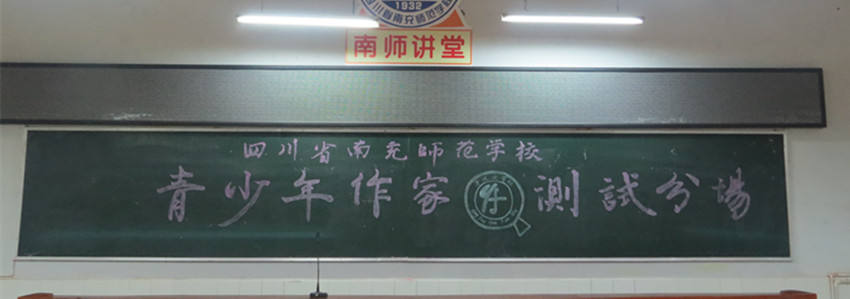 1932
四川省南充师范学校
南师讲堂
四川省南充師范学校
青少年作家 测試分場